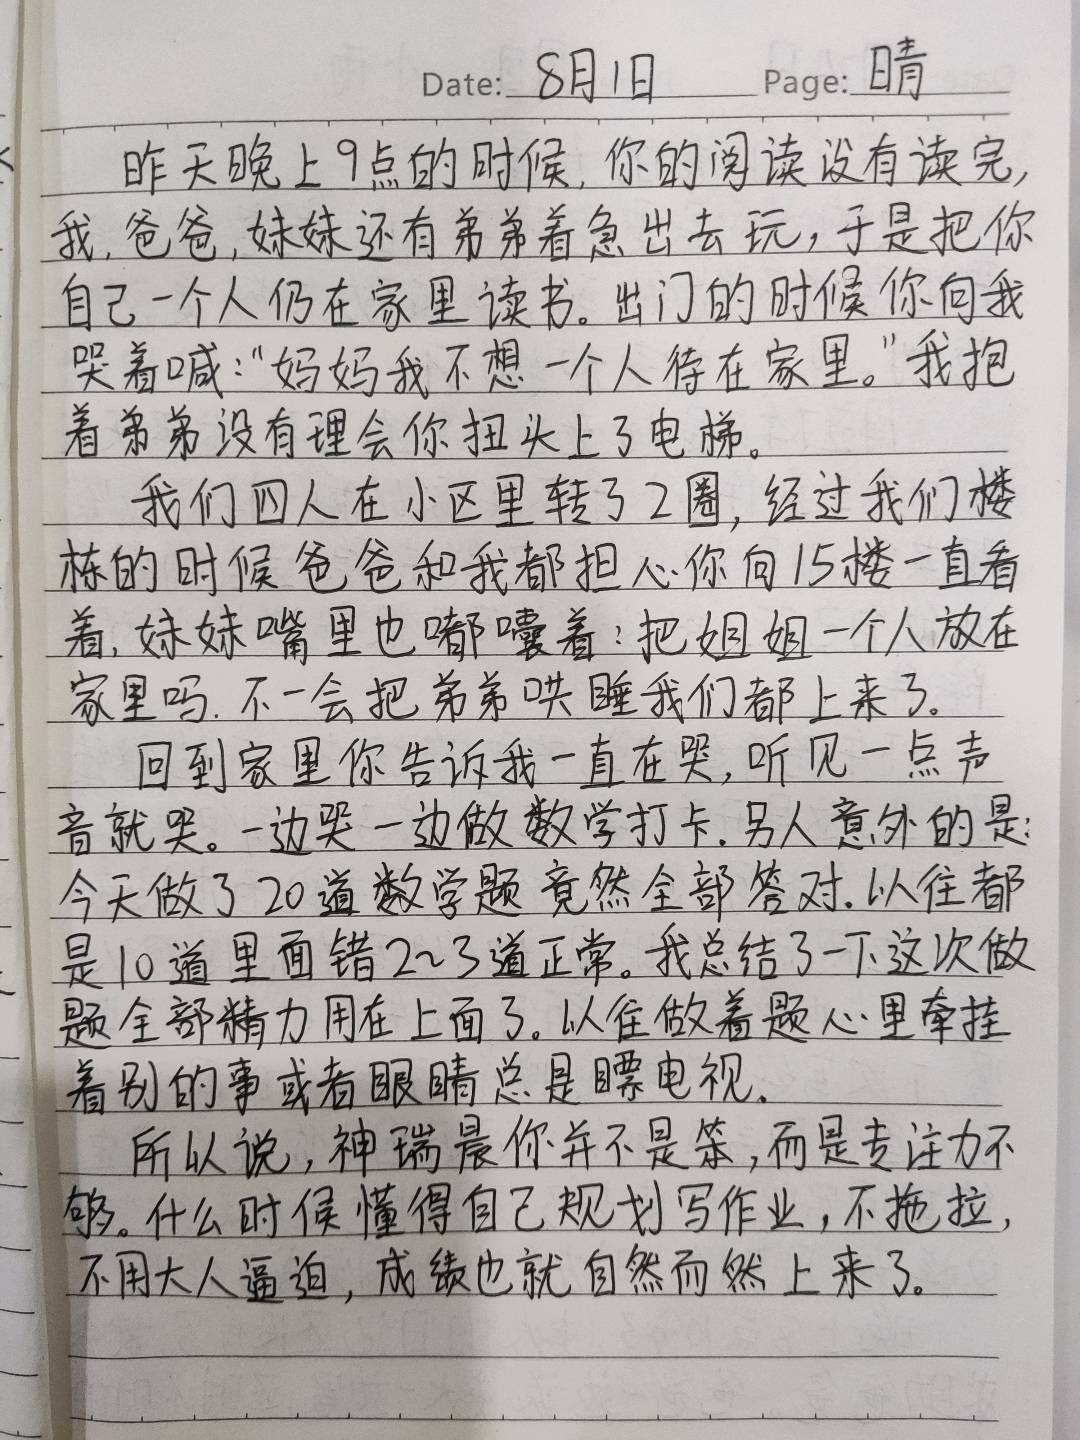 Date: 8月1日 Page: 晴
昨天晚上9点的时候,你的阅读没有读完,
我,爸爸,妹妹还有弟弟着急出去玩,于是把你
自己一个人仍在家里读书。出门的时候你向我
哭着喊:“妈妈我不想一个人待在家里。”我抱
着弟弟没有理会你扭头上了电梯。
我们四人在小区里转了2圈,经过我们楼
栋的时候爸爸和我都担心你向15楼一直看
着,妹妹嘴里也嘟囔着:把姐姐一个人放在
家里吗.不一会把弟弟哄睡我们都上来了。
回到家里你告诉我一直在哭,听见一点声
音就哭。一边哭一边做数学打卡.另人意外的是:
今天做了20道数学题竟然全部答对.以往都
是10道里面错2~3道正常。我总结了一下这次做
题全部精力用在上面了.以往做着题心里牵挂
着别的事或者眼睛总是瞟电视.
所以说,神瑞晨你并不是笨,而是专注力不
够。什么时候懂得自己规划写作业,不拖拉,
不用大人逼迫,成绩也就自然而然上来了。